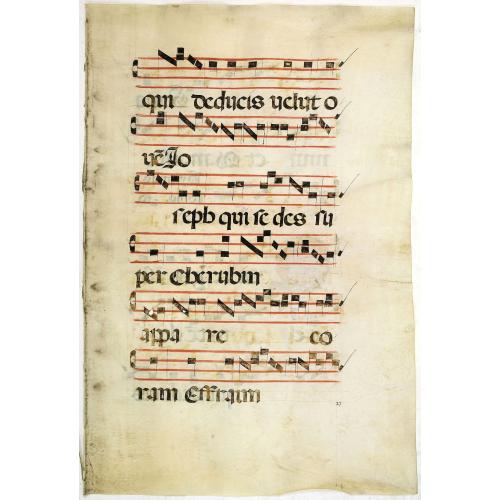 qui deducis velut o
vē Jo
seph qui se des su
per Cherubin
appa re co
ram Effraim
27